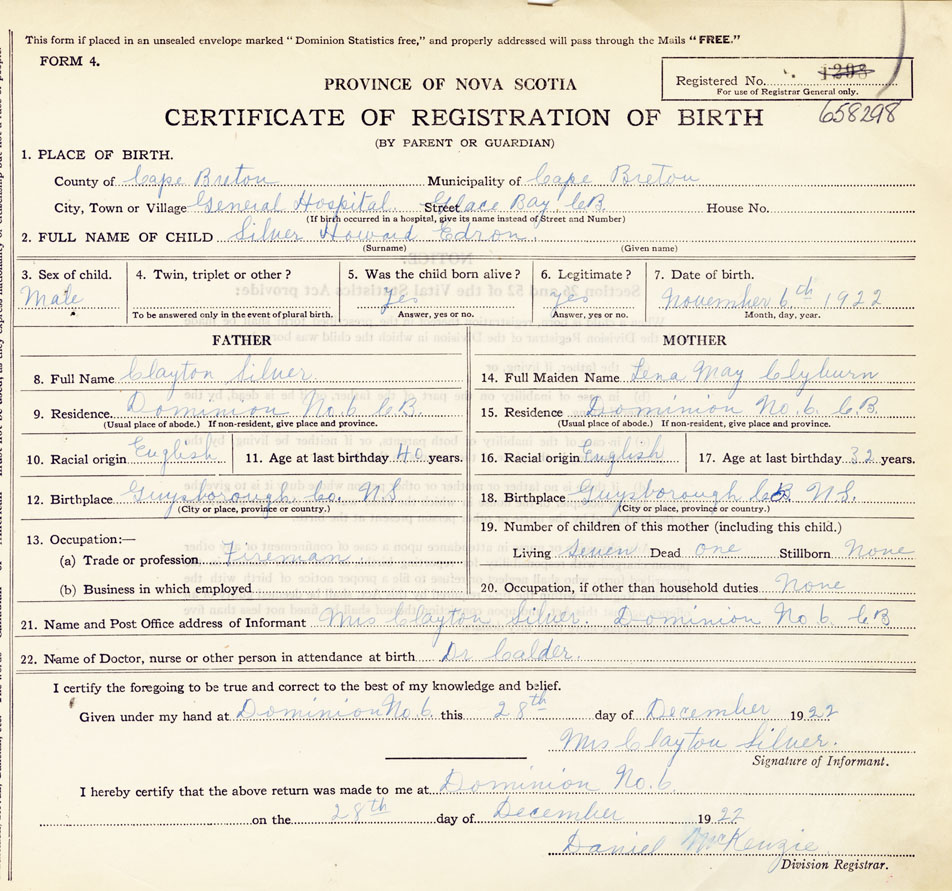 This form if placed in an unsealed envelope marked "Dominion Statistics free," and properly addressed will pass through the Mails "FREE."
FORM 4.
Registered No. 1298
For use of Registrar General only.
658298
PROVINCE OF NOVA SCOTIA
CERTIFICATE OF REGISTRATION OF BIRTH
(BY PARENT OR GUARDIAN)
1. PLACE OF BIRTH.
County of Cape Breton Municipality of Cape Breton
City, Town or Village General Hospital Street Glace Bay C.B. House No.
(If birth occurred in a hospital, give its name instead of Street and Number)
2. FULL NAME OF CHILD Silver Howard Edron.
(Surname) (Given name)
3. Sex of child. 4. Twin, triplet or other? 5. Was the child born alive? 6. Legitimate? 7. Date of birth.
Male Yes Yes November 6th 1922
To be answered only in the event of plural birth. Answer, yes or no. Answer, yes or no. Month, day, year.
FATHER MOTHER
8. Full Name Clayton Silver 14. Full Maiden Name Lena May Clyburn
9. Residence. Dominion No. 6 C.B. 15. Residence Dominion No. 6. C.B.
(Usual place of abode.) If non-resident, give place and province. (Usual place of abode.) If non-resident, give place and province.
10. Racial origin English 11. Age at last birthday 40 years. 16. Racial origin English 17. Age at last birthday 32 years.
12. Birthplace Guysborough Co. N.S 18. Birthplace Guysborough N.S.
(City or place, province or country.) (City or place, province or country.)
13. Occupation:— 19. Number of children of this mother (including this child.)
(a) Trade or profession Fireman Living Seven Dead one Stillborn None
(b) Business in which employed 20. Occupation, if other than household duties None
21. Name and Post Office address of Informant Mrs Clayton Silver. Dominion No 6. C B
22. Name of Doctor, nurse or other person in attendance at birth Dr Calder.
I certify the foregoing to be true and correct to the best of my knowledge and belief.
Given under my hand at Dominion No. 6. this 28th day of December 1922
Mrs Clayton Silver.
Signature of Informant.
I hereby certify that the above return was made to me at Dominion No. 6
on the 28th day of December 1922
Daniel McKenzie
Division Registrar.